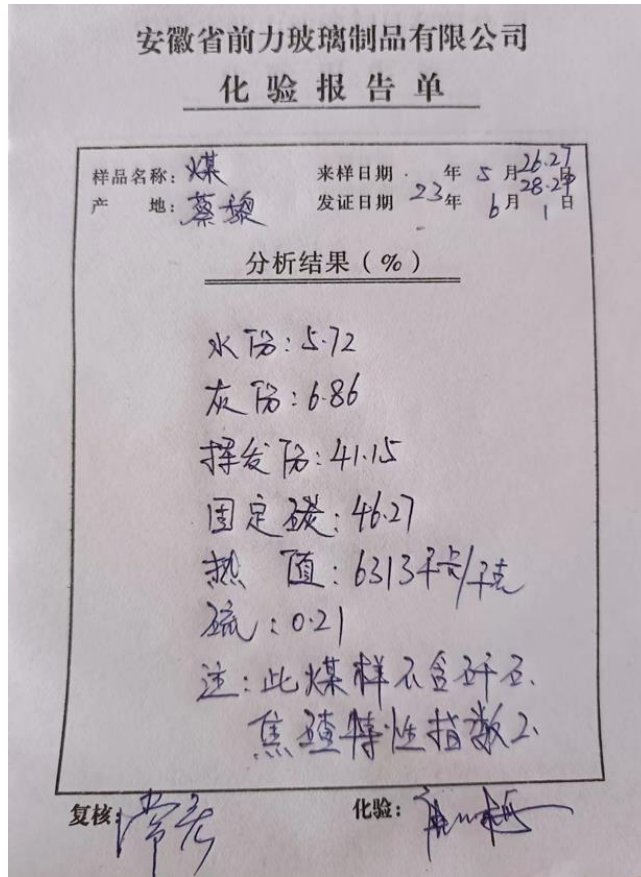 安徽省前力玻璃制品有限公司
化验报告单
样品名称：煤 来样日期 年 5 月 26.27 28.29 日
产 地：蔡 发证日期 23年 6月 1日
分析结果（%）
水份：5.72
灰份：6.86
挥发份：41.15
固定碳：46.27
热 值：6313千卡/千克
硫：0.21
注：此煤样不含矸石.
焦渣特性指数2.
复核：
化验：